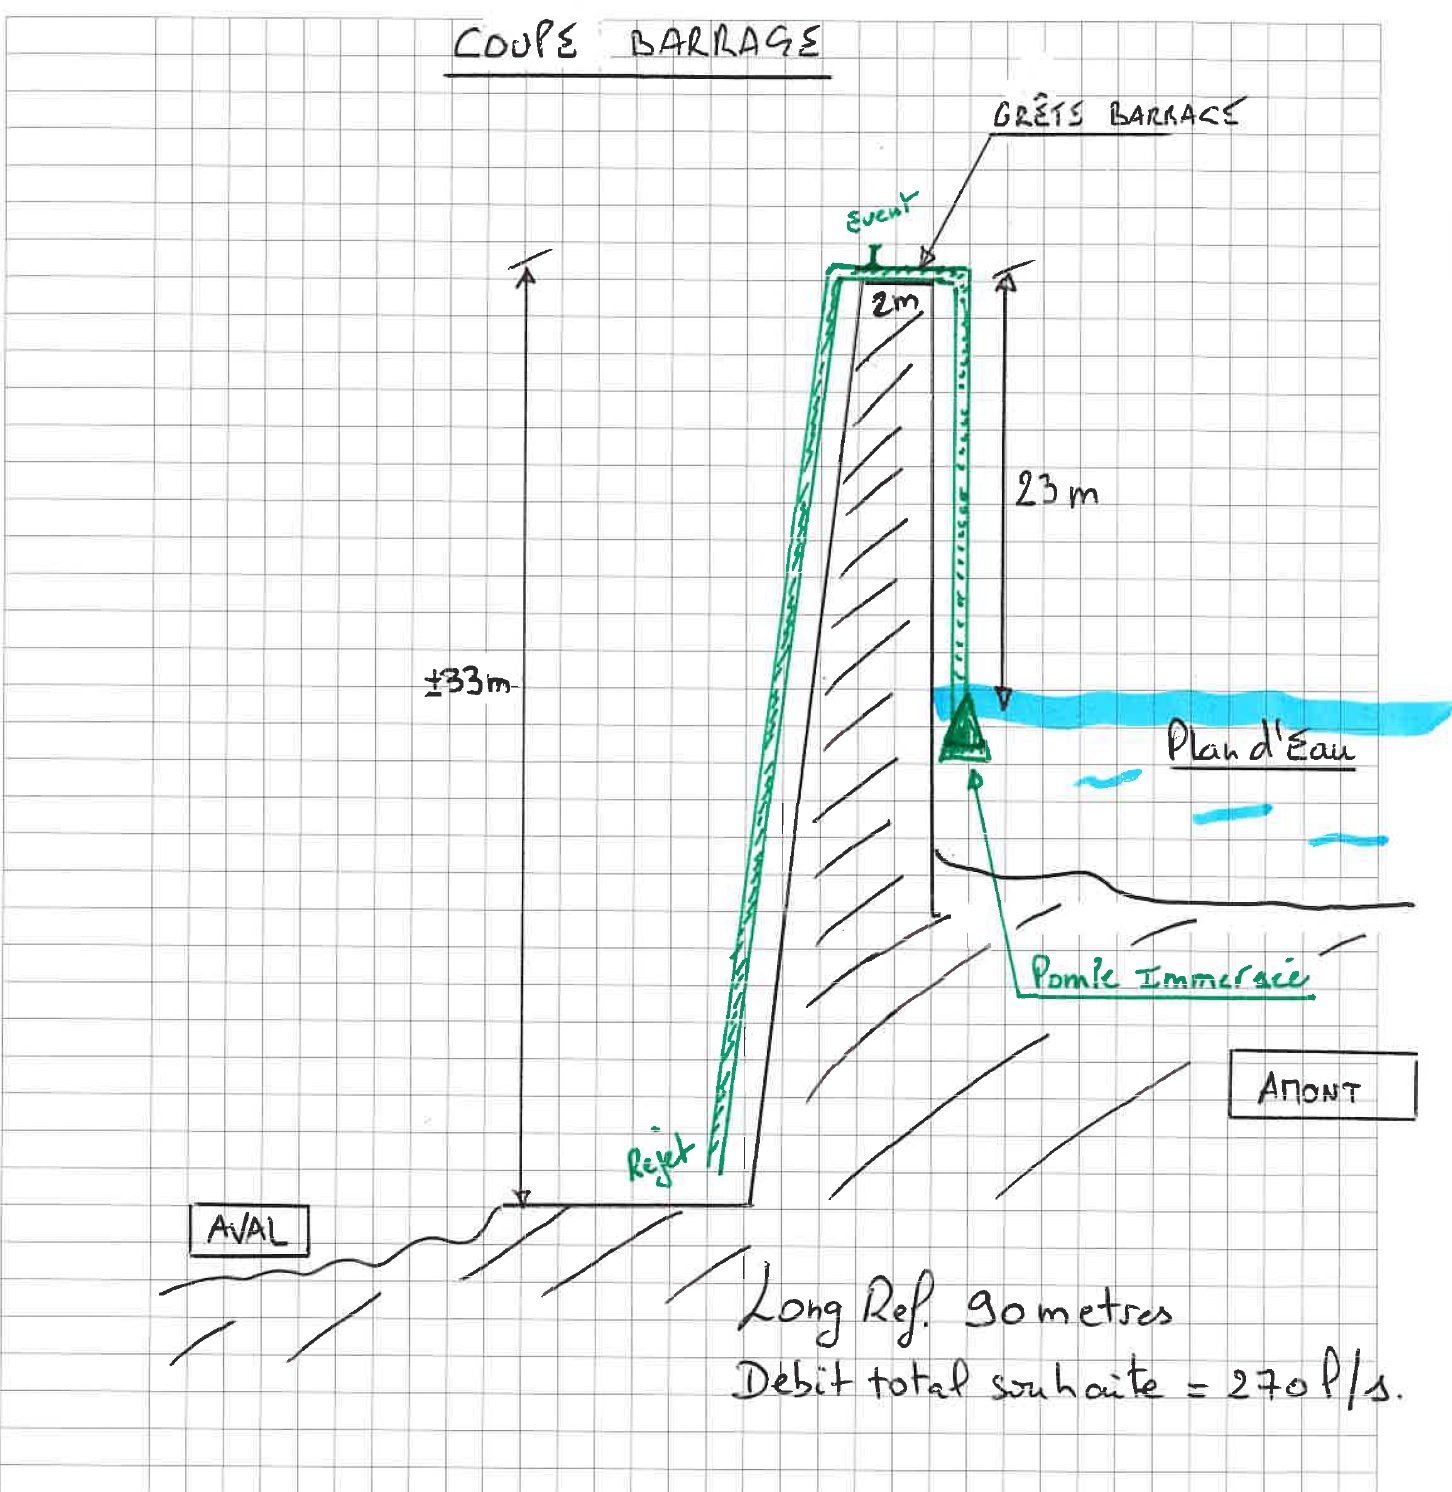 COUPE BARRAGE
CRÊTE BARRAGE
Event
2m
23 m
±33m
Plan d'Eau
Pompe Immergée
AMONT
Rejet
AVAL
Long Ref. 90 metres
Débit total souhaité = 270 l/s.